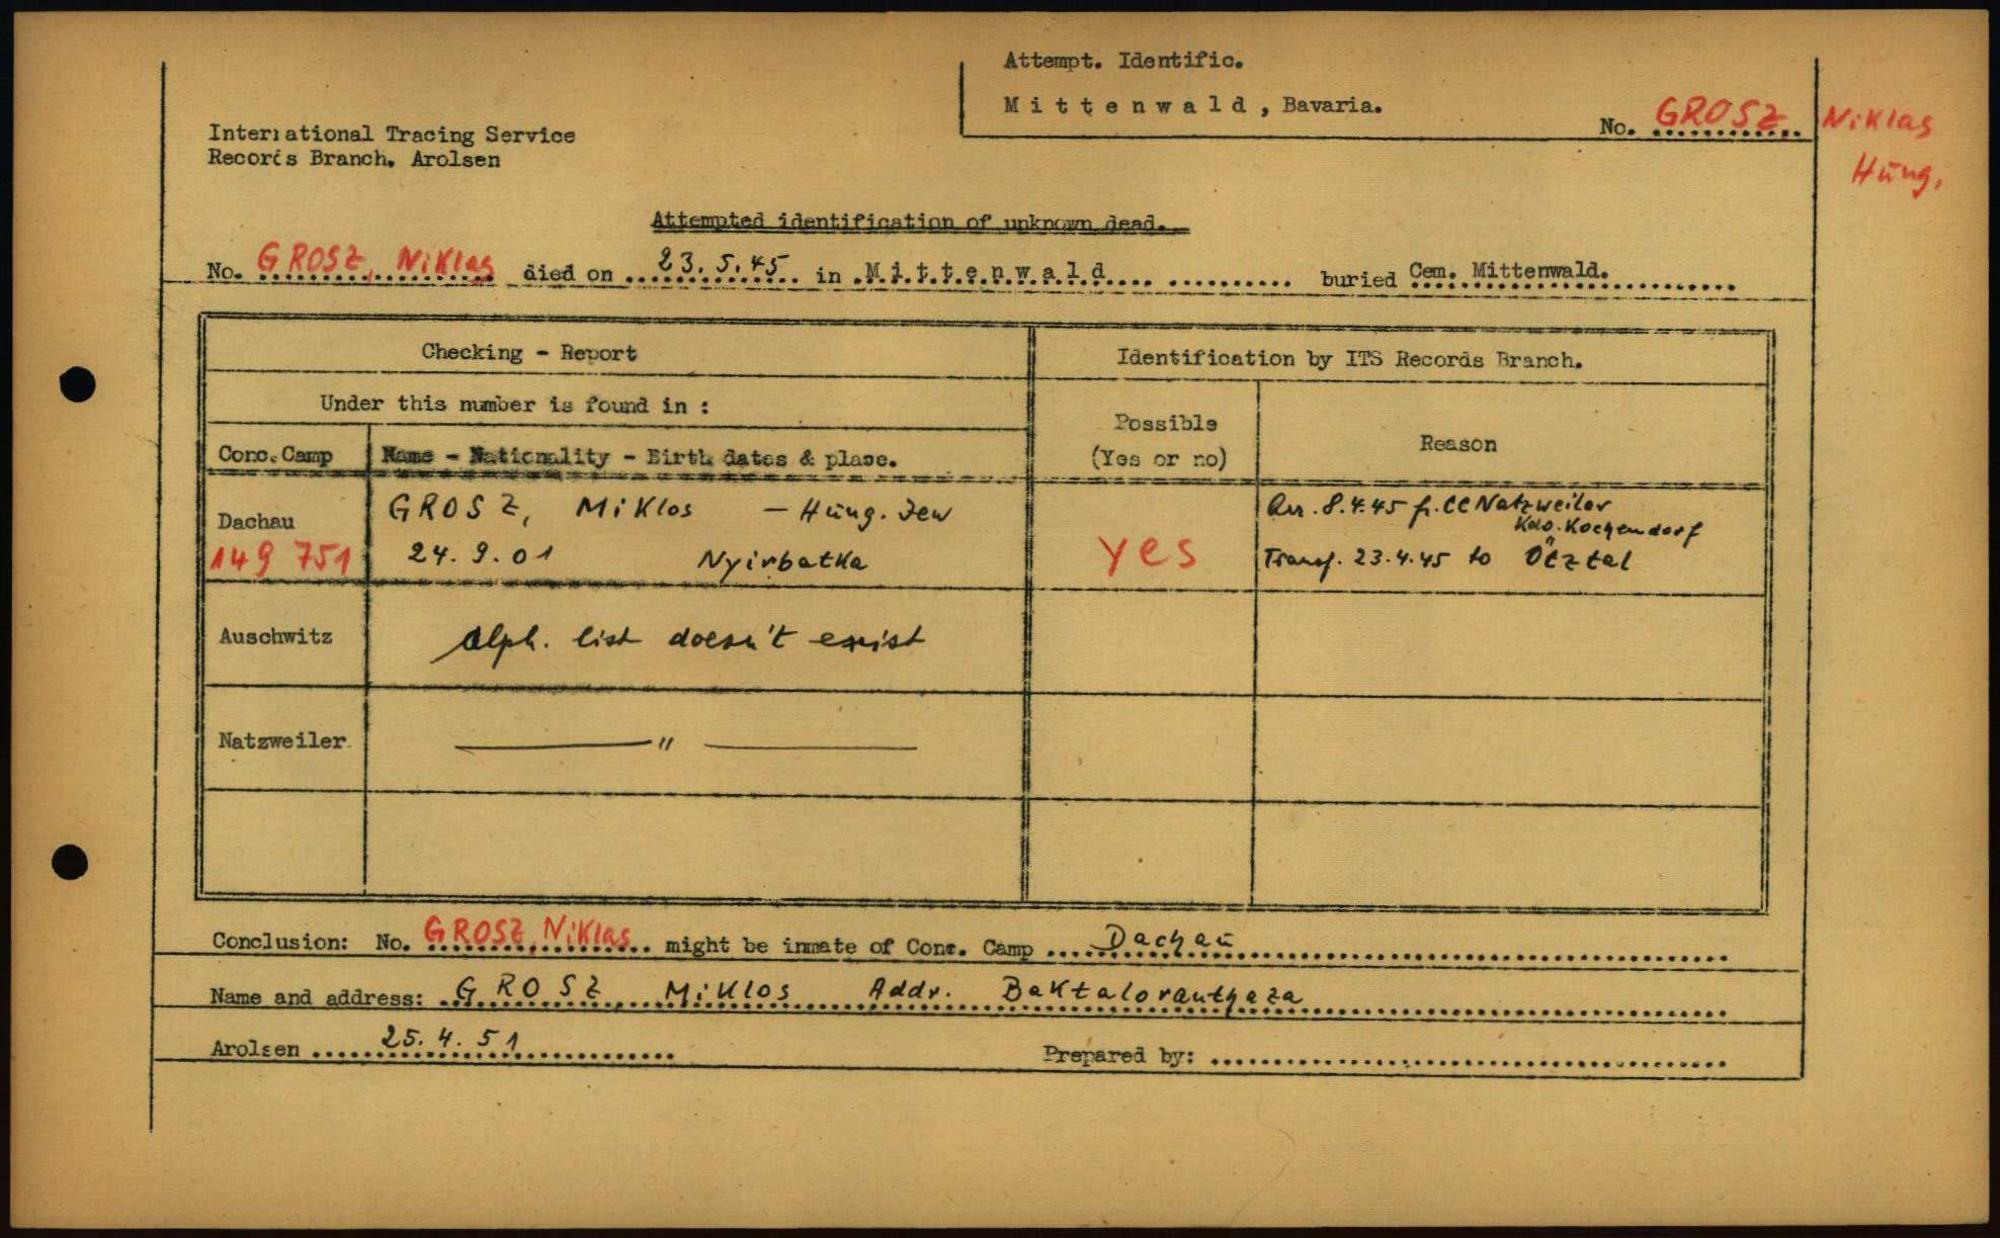 Attempt. Identific.
Mittenwald, Bavaria.
No. GROSZ, Niklas
Hung.
International Tracing Service
Records Branch. Arolsen
Attempted identification of unknown dead.
No. GROSZ, Niklas died on 23.5.45 in Mittenwald buried Cem. Mittenwald.
Checking - Report
Identification by ITS Records Branch.
Under this number is found in :
Possible
(Yes or no)
Reason
Conc.Camp
Name - Nationality - Birth dates & place.
Dachau
149 751
GROSZ, Miklos - Hung. Jew
24.9.01 Nyirbatka
yes
Arr. 8.4.45 fr. CC Natzweiler
Kdo. Kochendorf
Transf. 23.4.45 to Ötztal
Auschwitz
alph. list doesn't exist
Natzweiler
— " —
Conclusion: No. GROSZ, Niklas might be inmate of Conc. Camp Dachau
Name and address: GROSZ Miklos Addr. Baktaloranthaza
Arolsen 25.4.51
Prepared by: